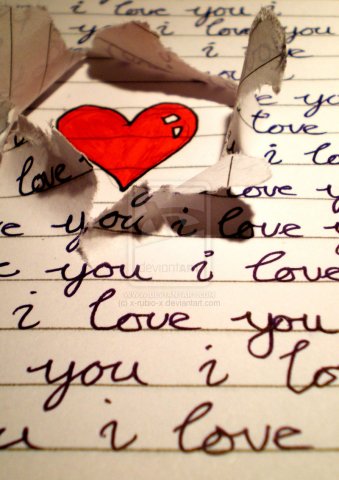 i love you i
you i love you
i
e you
love
i lo
love i
i love y
e you i love y
e you i love
i love you
you i lo
u i love
deviantART
(c) x-rubio-x.deviantart.com